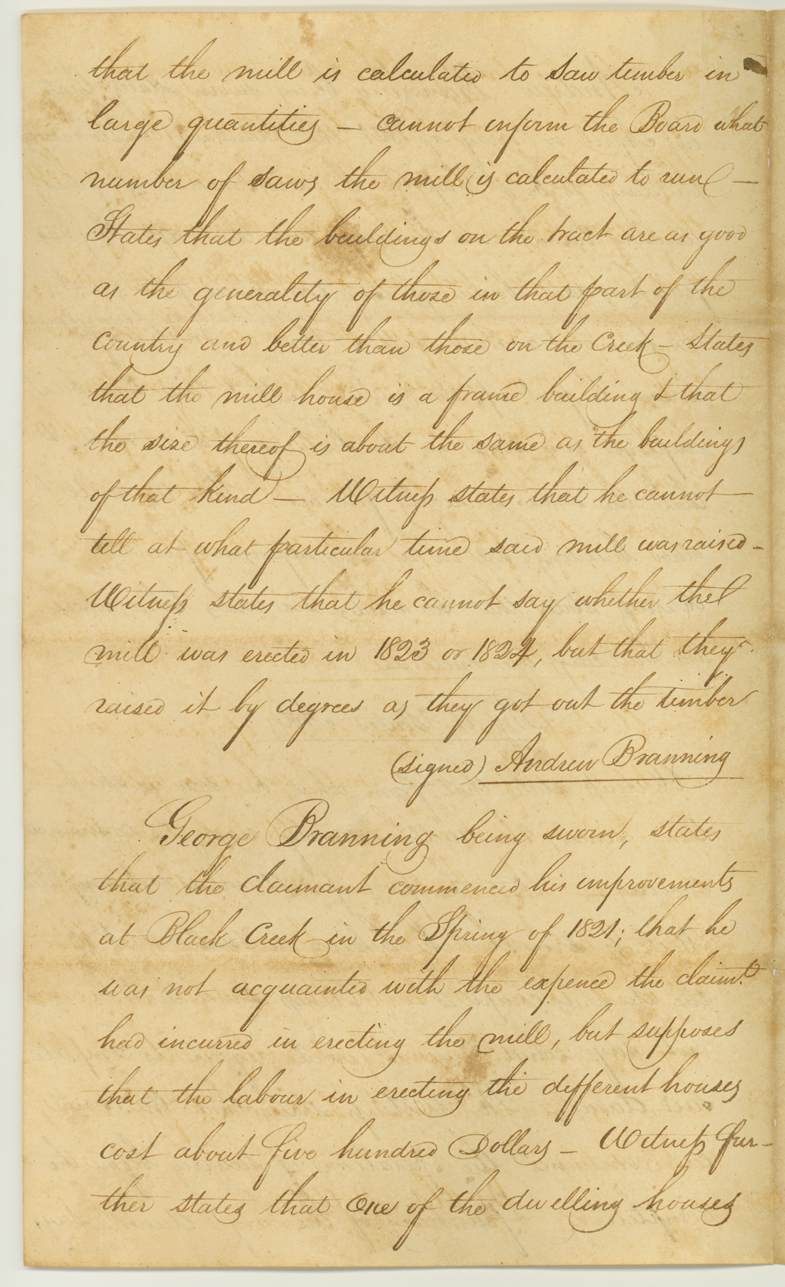 that the mill is calculated to saw timber in
large quantities — cannot inform the Board what
number of saws the mill is calculated to run —
States that the buildings on the tract are as good
as the generality of those in that part of the
country and better than those on the Creek — States
that the mill house is a frame building & that
the size thereof is about the same as the buildings
of that kind — Witness states that he cannot
tell at what particular time said mill was raised —
Witness states that he cannot say whether the
mill was erected in 1823 or 1824, but that they
raised it by degrees as they got out the timber
(signed) Andrew Branning
George Branning being sworn, states
that the claimant commenced his improvements
at Black Creek in the Spring of 1821; that he
was not acquainted with the expence the claimt.
had incurred in erecting the mill, but supposes
that the labour in erecting the different houses
cost about five hundred Dollars — Witness fur-
ther states that One of the dwelling houses